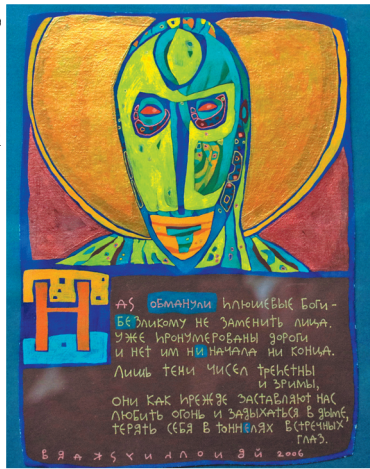 Нас обманули плюшевые боги –
Безликому не заменить лица.
Уже пронумерованы дороги
и нет им ни начала ни конца.
Лишь тени чисел трепетны
и зримы,
они как прежде заставляют нас
любить огонь и задыхаться в дыме,
терять себя в тоннелях встречных
глаз.
2006